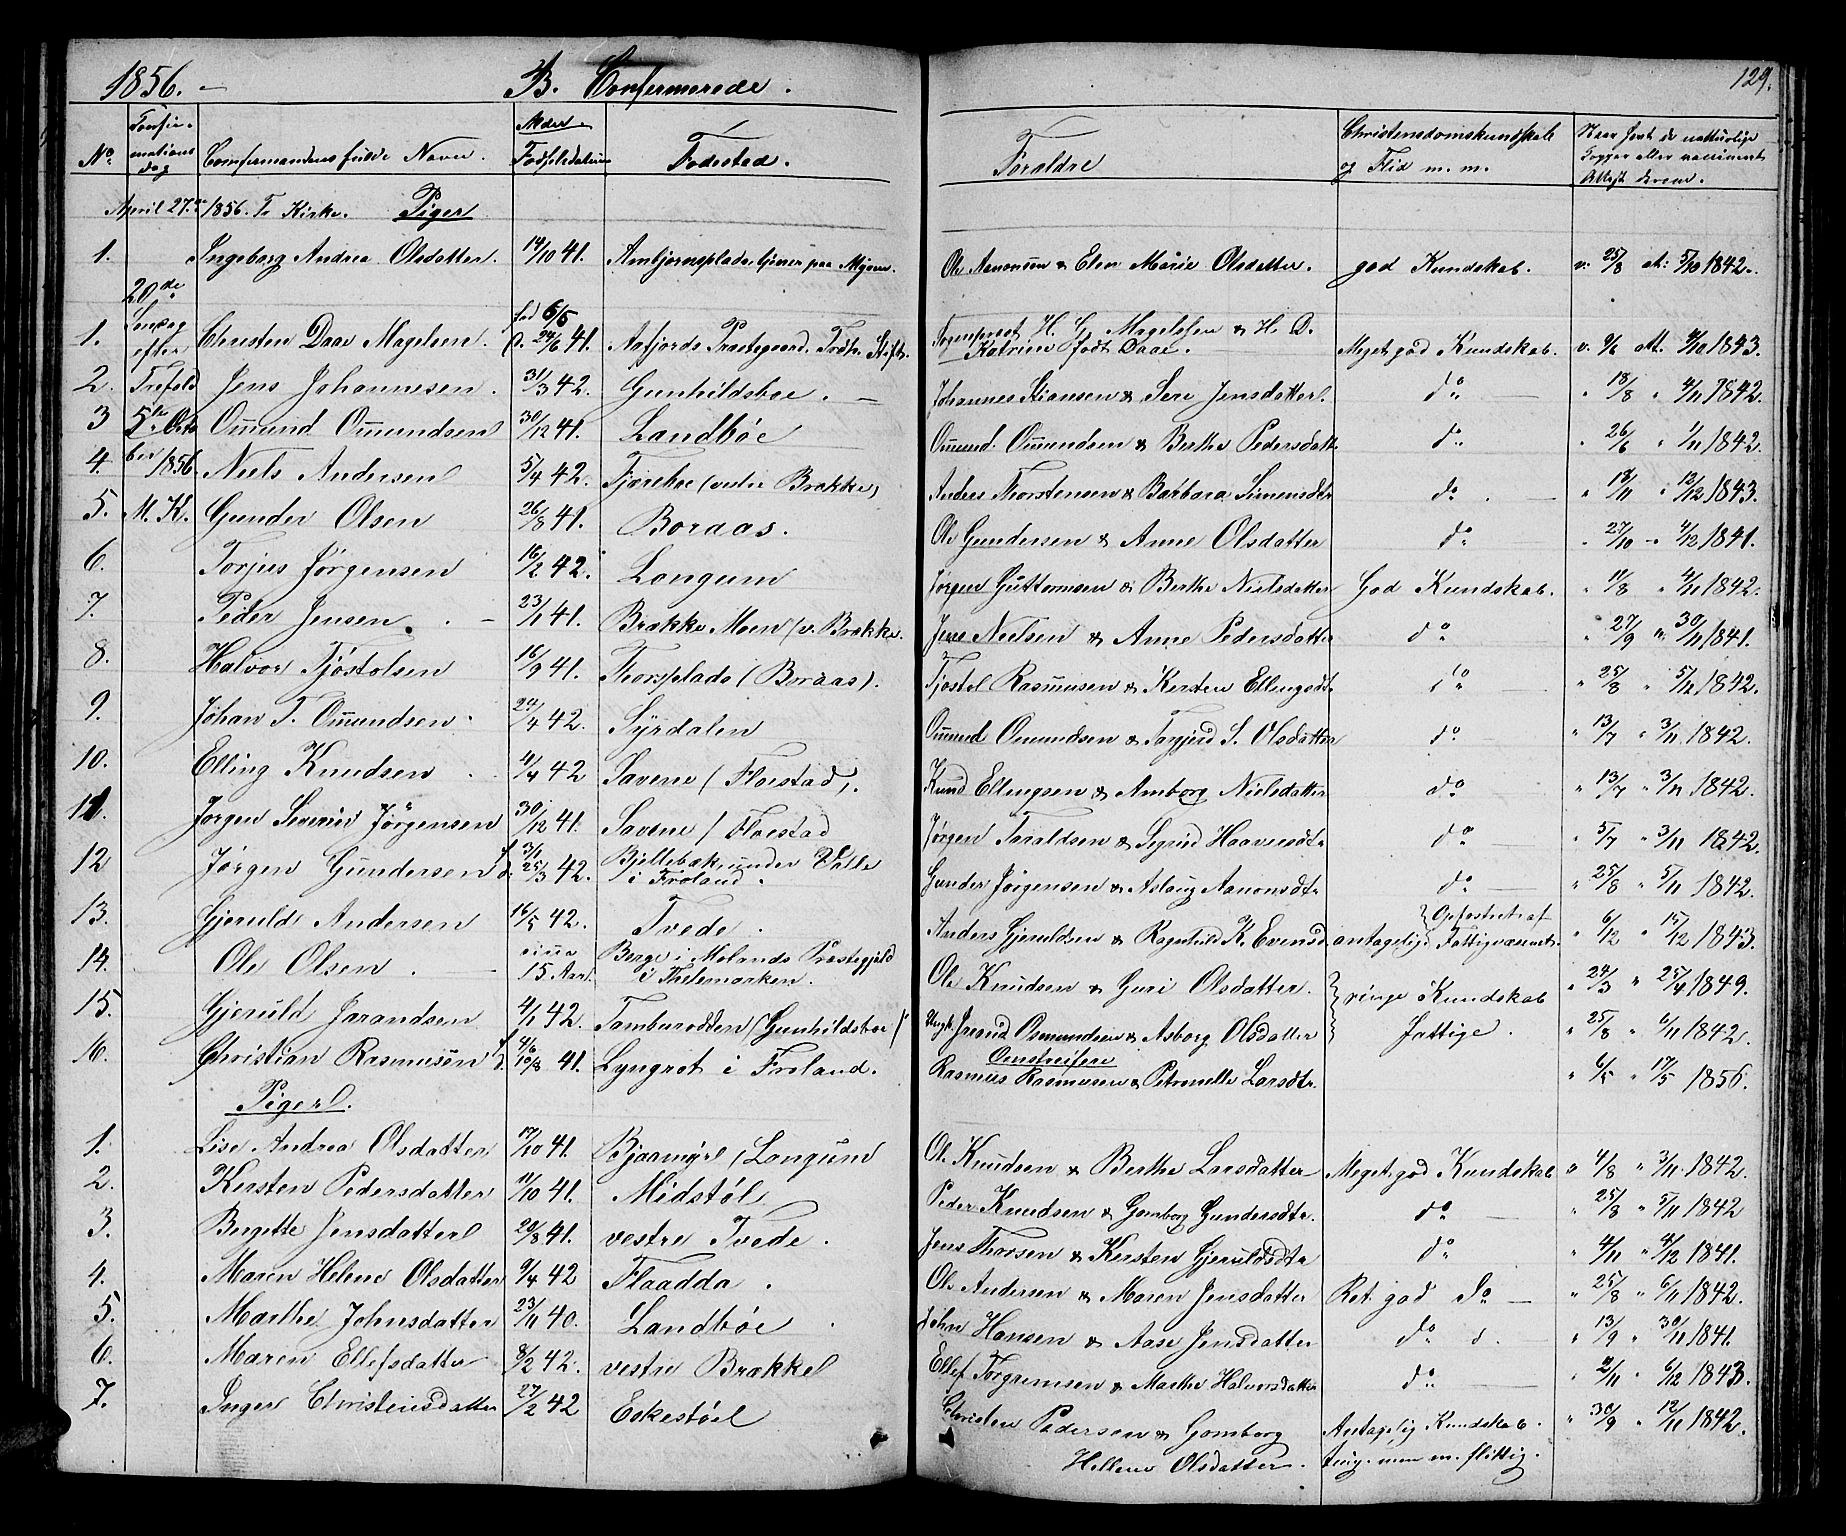 1856. B. Confirmerede. 129.
No. Confirmations dag Confirmandens fulde Navn. Alder. Fødselsdatum Fødested. Forældre Christendomskundskab og Flid m. m.
April 27de 1856. Tr Kirke. Piger
1. Ingeborg Andrea Olsdatter. 14/10 41. Ole Aanonsen & Elen Marie Olsdatter. god Kundskab. v. 25/8 at: 5/10 1842.
20de Søndag efter Trefold 5te October 1856 M. K.
1. Christen Daae Magelsen. 41. Aafjords Præstegaard. H. G. Magelssen & H. D. Katrine født Daae. Meget god Kundskab. 1843.
2. Jens Johannesen. 31/3 42. Gunhildsboe. Johannes Stiansen & Seri Jensdatter. do 18/8 4/11 1842.
3 Omund Omundsen 30/12 41. Landbøe Omund Omundsen & Berthe Pedersdatt. do 26/6 1/11 1842.
4. Niels Andersen 5/4 42. Anders Thorstensen & Barbara Simensdtr do 18/11 12/12 1843.
5. Gunder Olsen 26/8 41. Boraas. Ole Gundersen & Anne Olsdatter do 27/10 4/12 1841.
6. Torjus Jørgensen 16/2 42. Longum Jørgen Guttormsen & Berthe Nielsdatter God Kundskab. 11/8 4/11 1842.
7. Peder Jensen. 23/1 41. Brække Moen (v. Brække. Jens Nielsen & Anne Pedersdatter do 27/9 30/11 1841.
8. Halvor Tjøstolsen 16/9 41. Thorsplads (Boraas). Tjøstol Rasmusen & Kersten Ellingsdt. do 25/8 5/11 1842.
9. Johan T. Omundsen. 24/4 42. Syrdalen Omund Omundsen & Targjerd S. Olsdatter do 13/7 3/11 1842.
10. Elling Knudsen 4/4 42 Savene (Floestad). Knud Ellingsen & Amborg Nielsdatter do 13/7 3/11 1842.
11. Jørgen Severin Jørgensen 30/12 41. Savene (Floestad Jørgen Taraldsen & Sigrid Haaversdtr do 5/7 3/11 1842.
12 Jørgen Gundersen f. 3/1 d. 25/3 42. Bjellebæk under Valle i Froland. Gunder Jørgensen & Aslaug Aanonsdtr do 25/8 5/11 1842.
13. Gjeruld Andersen 16/5 42. Tvede. Anders Gjeruldsen & Ragnhild K. Evensd antagelig Opfostret af Fattigvæsenet. 6/12 15/12 1843.
14. Ole Olsen. circa 15 Aar. Berge i Molands Præstegjeld i Thelemarken. Ole Knudsen & Guri Olsdatter. ringe Kundskab 24/3 25/4 1849.
15. Gjeruld Jarandsen 4/1 42. (Gunhildsboe) Jarand Osmundsen & Asborg Olsdatter fattige. 25/8 6/11 1842.
16. Christian Rasmusen 41. Lyngrot i Froland. Omstreifere Rasmus Rasmusen & Petronelle Larsdtr. 6/5 17/5 1856.
Piger.
1. Lise Andrea Olsdatter 17/10 41. Bjaamyr (Longum Ole Knudsen & Berthe Larsdatter Meget god Kundskab 4/8 3/11 1842.
2. Kersten Pedersdatter 11/10 41. Midstøl Peder Knudsen & Gomborg Gundersdtr. do 25/8 5/11 1842
3. Birgitte Jensdatter 20/8 41. vestre Tvede. Jens Thorsen & Kersten Gjeruldsdtr do 4/11 4/12 1841.
4. Maren Helene Olsdatter 9/4 42 Flaadda. Ole Andersen & Maren Jensdatter Ret god do 25/8 6/11 1842.
5. Marthe Johnsdatter 23/11 40. Landbøe John Hansen & Aase Jensdatter do 13/9 30/11 1841.
6. Maren Ellefsdatter 8/2 42. vestre Brække Ellef Torgrimsen & Marthe Halvorsdatter do 2/11 6/12 1843.
7. Inger Christensdatter 27/2 42 Eekestøel Christen Pedersen & Gomborg Hellene Olsdatter. Antagelig Kundskab. flittig. 30/9 12/11 1842.